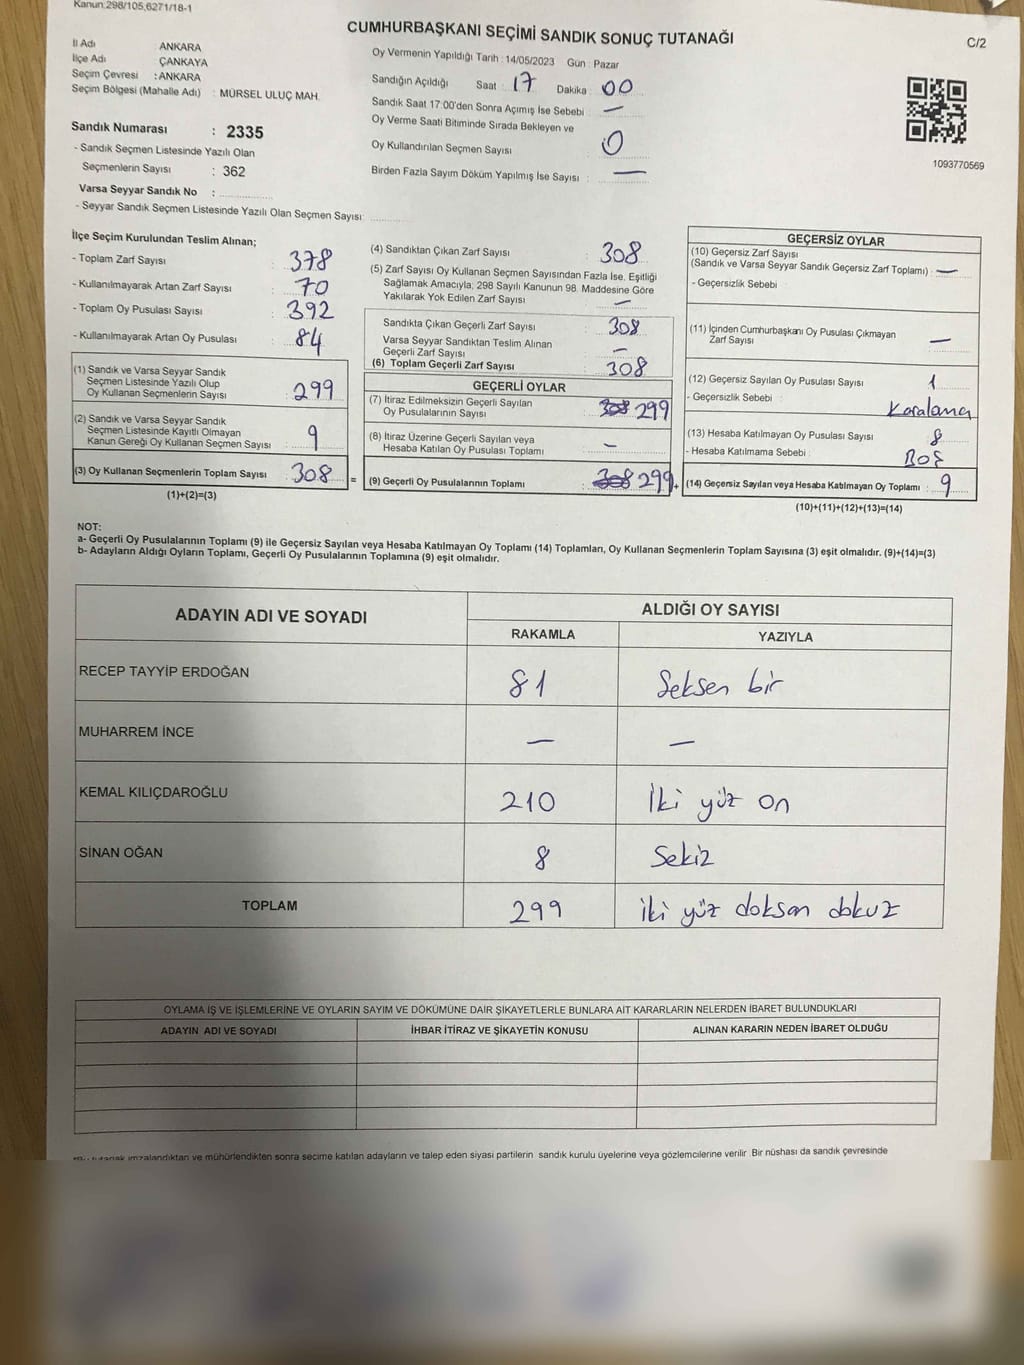 Kanun:298/105,6271/18-1
CUMHURBAŞKANI SEÇİMİ SANDIK SONUÇ TUTANAĞI
C/2
İl Adı : ANKARA
İlçe Adı : ÇANKAYA
Seçim Çevresi : ANKARA
Seçim Bölgesi (Mahalle Adı) : MÜRSEL ULUÇ MAH.
Sandık Numarası : 2335
- Sandık Seçmen Listesinde Yazılı Olan
Seçmenlerin Sayısı : 362
Varsa Seyyar Sandık No :
- Seyyar Sandık Seçmen Listesinde Yazılı Olan Seçmen Sayısı:
Oy Vermenin Yapıldığı Tarih : 14/05/2023 Gün : Pazar
Sandığın Açıldığı Saat : 17 Dakika : 00
Sandık Saat 17:00'den Sonra Açımış İse Sebebi : —
Oy Verme Saati Bitiminde Sırada Bekleyen ve
Oy Kullandırılan Seçmen Sayısı : 0
Birden Fazla Sayım Döküm Yapılmış İse Sayısı : —
1093770569
İlçe Seçim Kurulundan Teslim Alınan;
- Toplam Zarf Sayısı : 378
- Kullanılmayarak Artan Zarf Sayısı : 70
- Toplam Oy Pusulası Sayısı : 392
- Kullanılmayarak Artan Oy Pusulası : 84
(1) Sandık ve Varsa Seyyar Sandık
Seçmen Listesinde Yazılı Olup
Oy Kullanan Seçmenlerin Sayısı : 299
(2) Sandık ve Varsa Seyyar Sandık
Seçmen Listesinde Kayıtlı Olmayan
Kanun Gereği Oy Kullanan Seçmen Sayısı : 9
(3) Oy Kullanan Seçmenlerin Toplam Sayısı : 308 =
(1)+(2)=(3)
(4) Sandıktan Çıkan Zarf Sayısı : 308
(5) Zarf Sayısı Oy Kullanan Seçmen Sayısından Fazla İse, Eşitliği
Sağlamak Amacıyla; 298 Sayılı Kanunun 98. Maddesine Göre
Yakılarak Yok Edilen Zarf Sayısı : —
Sandıkta Çıkan Geçerli Zarf Sayısı : 308
Varsa Seyyar Sandıktan Teslim Alınan
Geçerli Zarf Sayısı : —
(6) Toplam Geçerli Zarf Sayısı : 308
GEÇERLİ OYLAR
(7) İtiraz Edilmeksizin Geçerli Sayılan
Oy Pusulalarının Sayısı : 308 299
(8) İtiraz Üzerine Geçerli Sayılan veya
Hesaba Katılan Oy Pusulası Toplamı : —
(9) Geçerli Oy Pusulalarının Toplamı : 308 299 +
GEÇERSİZ OYLAR
(10) Geçersiz Zarf Sayısı
(Sandık ve Varsa Seyyar Sandık Geçersiz Zarf Toplamı) : —
- Geçersizlik Sebebi :
(11) İçinden Cumhurbaşkanı Oy Pusulası Çıkmayan
Zarf Sayısı : —
(12) Geçersiz Sayılan Oy Pusulası Sayısı : 1
- Geçersizlik Sebebi : Karalama
(13) Hesaba Katılmayan Oy Pusulası Sayısı : 8
- Hesaba Katılmama Sebebi : Boş
(14) Geçersiz Sayılan veya Hesaba Katılmayan Oy Toplamı : 9
(10)+(11)+(12)+(13)=(14)
NOT:
a- Geçerli Oy Pusulalarının Toplamı (9) ile Geçersiz Sayılan veya Hesaba Katılmayan Oy Toplamı (14) Toplamları, Oy Kullanan Seçmenlerin Toplam Sayısına (3) eşit olmalıdır. (9)+(14)=(3)
b- Adayların Aldığı Oyların Toplamı, Geçerli Oy Pusulalarının Toplamına (9) eşit olmalıdır.
ADAYIN ADI VE SOYADI ALDIĞI OY SAYISI
RAKAMLA YAZIYLA
RECEP TAYYİP ERDOĞAN 81 Seksen bir
MUHARREM İNCE — —
KEMAL KILIÇDAROĞLU 210 İki yüz on
SİNAN OĞAN 8 Sekiz
TOPLAM 299 iki yüz doksan dokuz
OYLAMA İŞ VE İŞLEMLERİNE VE OYLARIN SAYIM VE DÖKÜMÜNE DAİR ŞİKAYETLERLE BUNLARA AİT KARARLARIN NELERDEN İBARET BULUNDUKLARI
ADAYIN ADI VE SOYADI İHBAR İTİRAZ VE ŞİKAYETİN KONUSU ALINAN KARARIN NEDEN İBARET OLDUĞU
tutanak imzalandıktan ve mühürlendikten sonra seçime katılan adayların ve talep eden siyasi partilerin sandık kurulu üyelerine veya gözlemcilerine verilir Bir nüshası da sandık çevresinde